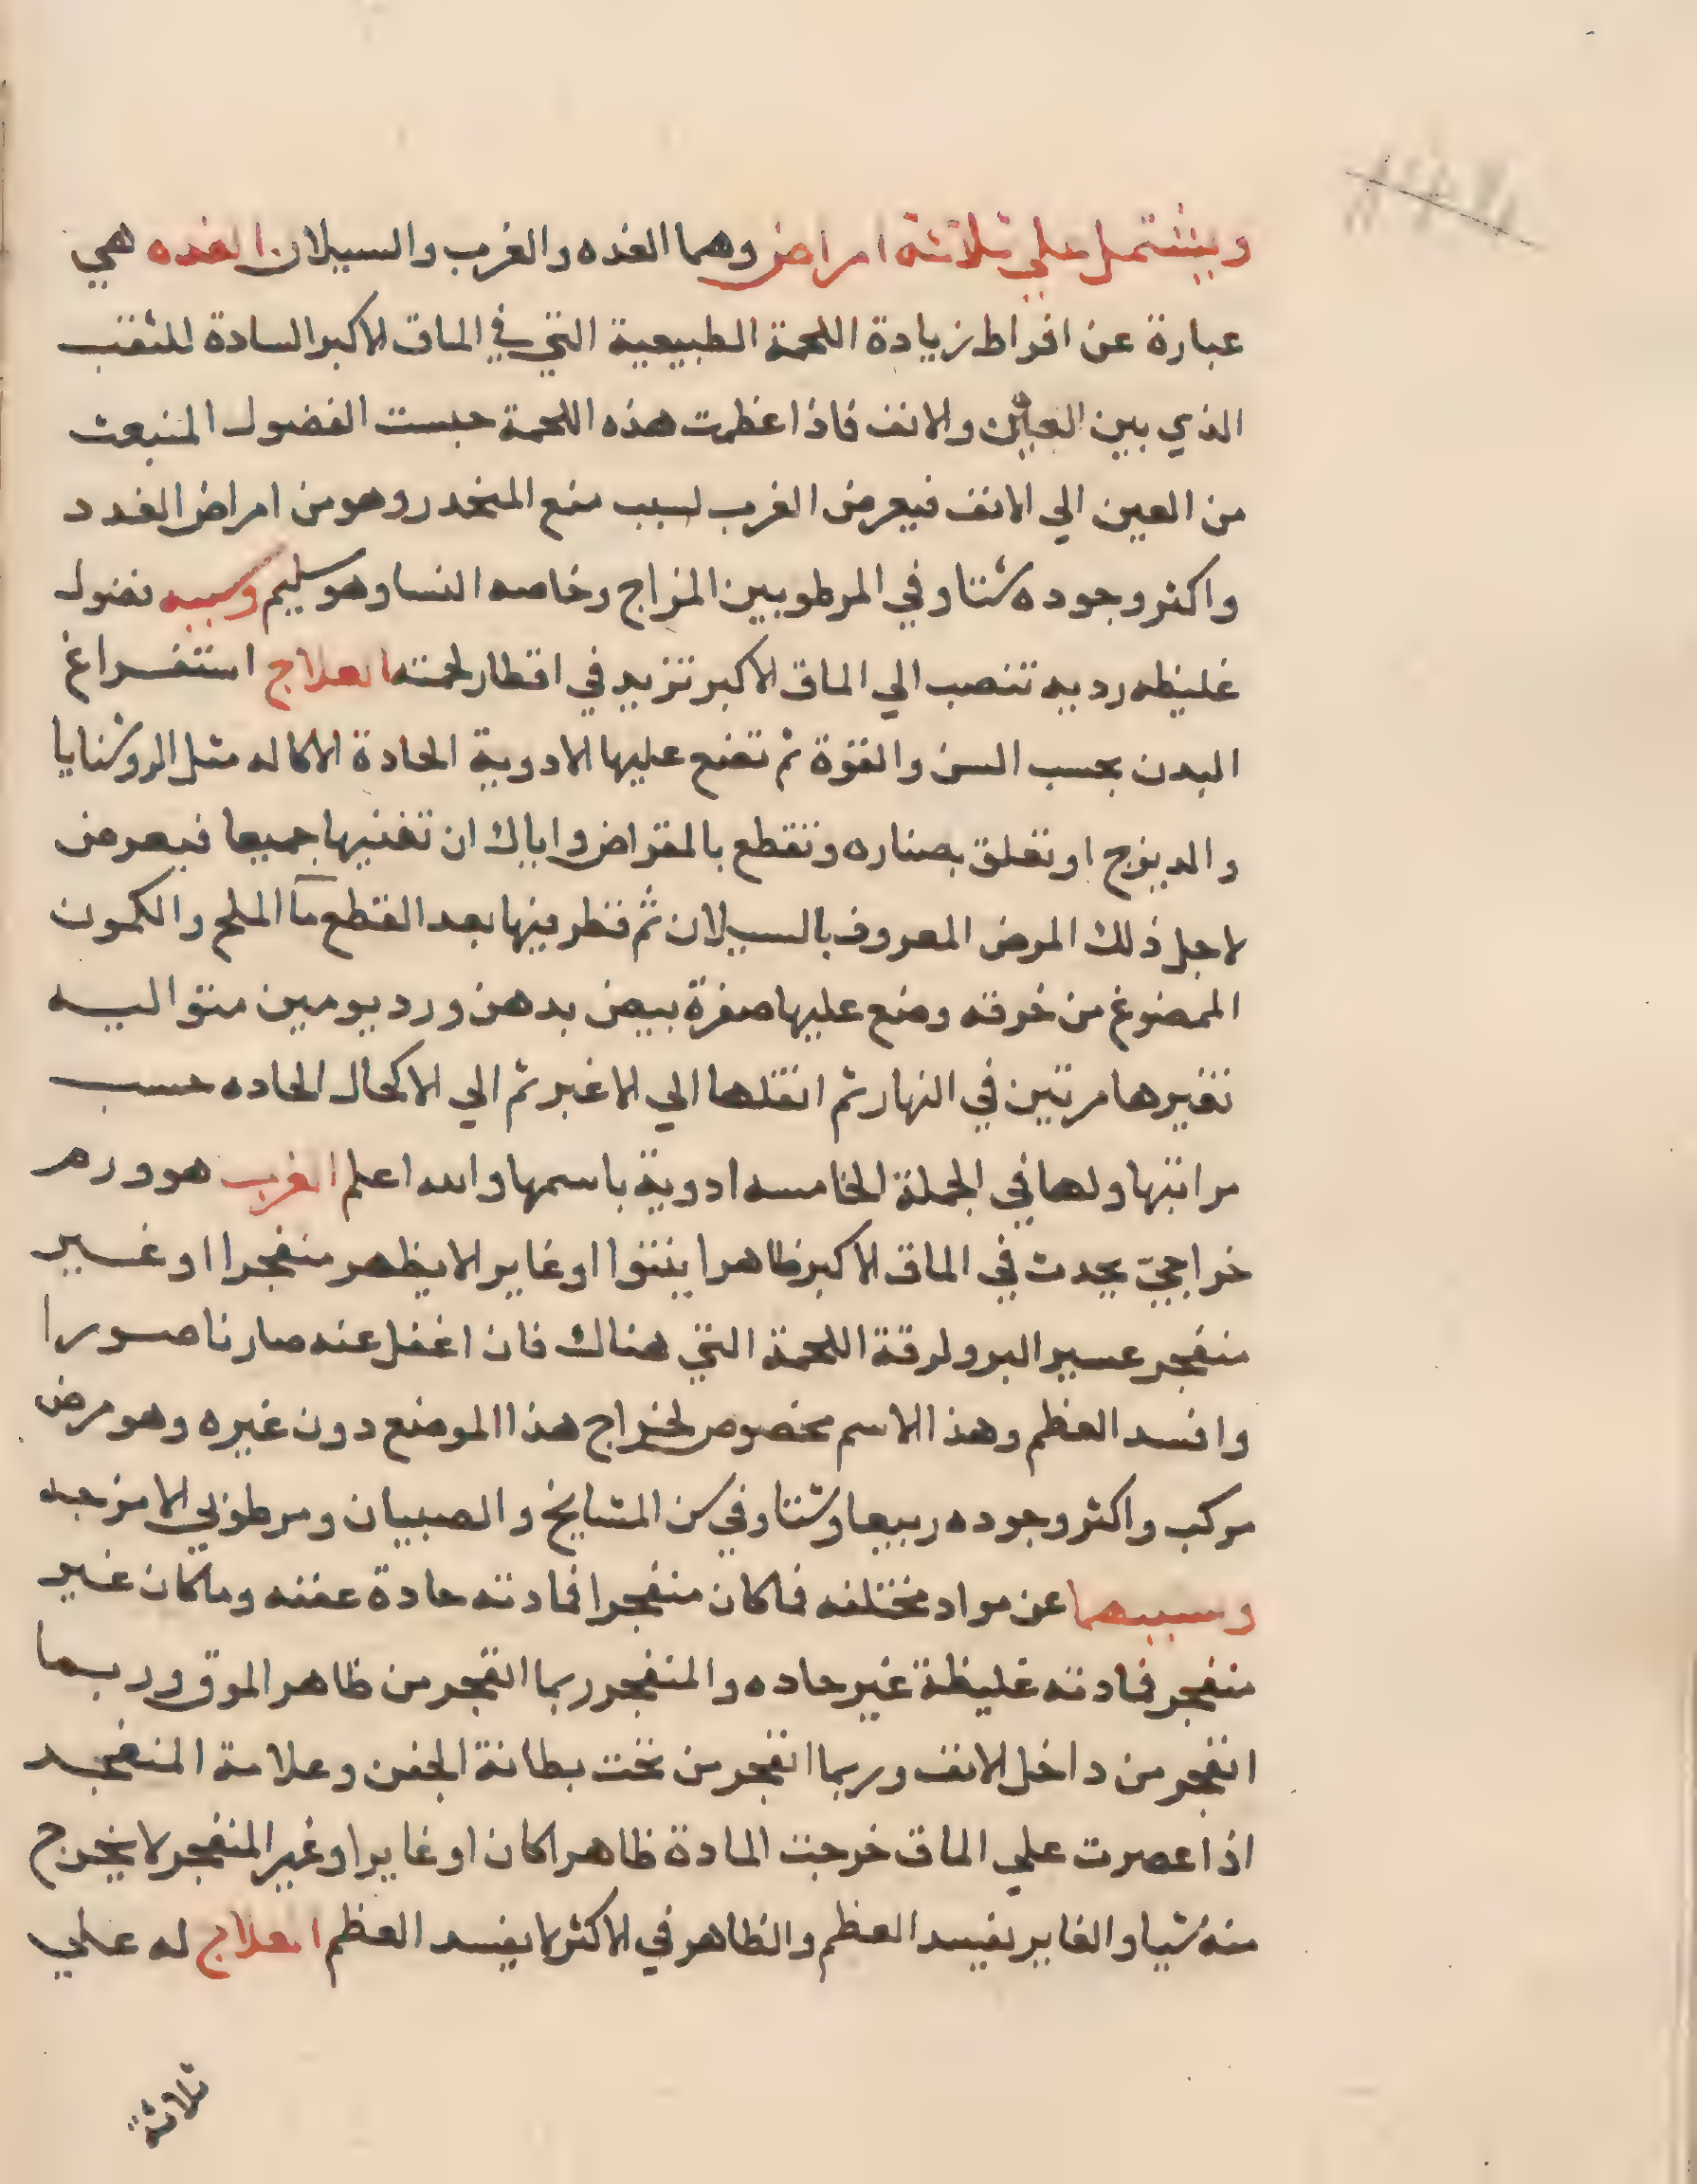 ويشتمل علي ثلاثة امراض وهما الغده والغرب والسيلان الغده هي
عبارة عن افراط زيادة اللحمة الطبيعية التي في الماق الاكبر السادة للثقب
الذي بين العين والانف فاذا عظمت هذه اللحمة حبست الفضول المنبعث
من العين الي الانف فيعرض الغرب لسبب منع المنحدر وهو من امراض الغدد
واكثر وجوده شتا وفي المرطوبين المزاج وخاصه النسا وهو سليم وسببه فضول
غليظه رديه تنصب الي الماق الاكبر تزيد في اقطار لحمته العلاج استفراغ
البدن بحسب السن والقوة ثم تضع عليها الادوية الحادة الاكاله مثل الروشنايا
والديزج او تعلق بصناره وتقطع بالمقراض واياك ان تفنيها جميعا فيعرض
لاجل ذلك المرض المعروف بالسيلان ثم قطر فيها بعد القطع ما الملح والكمون
الممضوغ من خرقه وضع عليها صفرة بيض بدهن ورد يومين متواليه
تغيرها مرتين في النهار ثم انقلها الي الاغبر ثم الي الاكحال الحاده حسب
مراتبها ولها في الجملة الخامسه ادوية باسمها والله اعلم الغرب هو ورم
خراجي يحدث في الماق الاكبر ظاهرا ينتوا او غاير الا يظهر منفجرا او غير
منفجر عسير البرو لرقة اللحمة التي هناك فان اغفل عنه صار ناصورا
وافسد العظم وهذا الاسم مخصوص لخراج هذا الموضع دون غيره وهو مرض
مركب واكثر وجوده ربيعا وشتا وفي سن المشايخ والصبيان ومرطوبي الامزجه
وسببهما عن مواد مختلفه فما كان منفجرا فمادته حادة عفنه وما كان غير
منفجر فمادته غليظة غير حاده والمنفجر ربما انفجر من ظاهر الموق وربما
انفجر من داخل الانف وربما انفجر من تحت بطانة الجفن وعلامة المنفجر
اذا عصرت علي الماق خرجت المادة ظاهرا كان او غايرا وغير المنفجر لا يخرج
منه شيا والغاير يفسد العظم والظاهر في الاكثر لا يفسد العظم العلاج له علي
ثلاثة